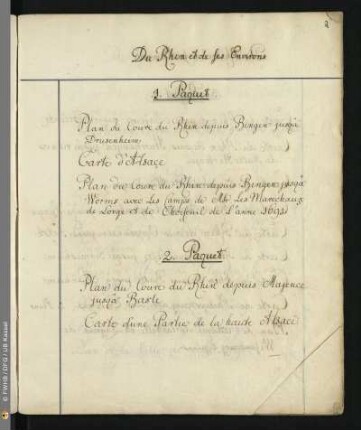 2
Du Rhin et de ses Environs
1. Paquet
Plan du Cours du Rhin depuis Bingen jusqu'a
Drusenheim
Carte d'Alsace
Plan du cours du Rhin depuis Bingen jusqu'a
Worms avec les camps de Mrs Les Marechaux
de Lorge et de Choiseuil de L'anné 1692
2. Paquet
Plan du Cours du Rhin depuis Mayence
jusqu'a Basle
Carte d'une Partie de la haute Alsace
© FWHB / DFG / UB Kassel